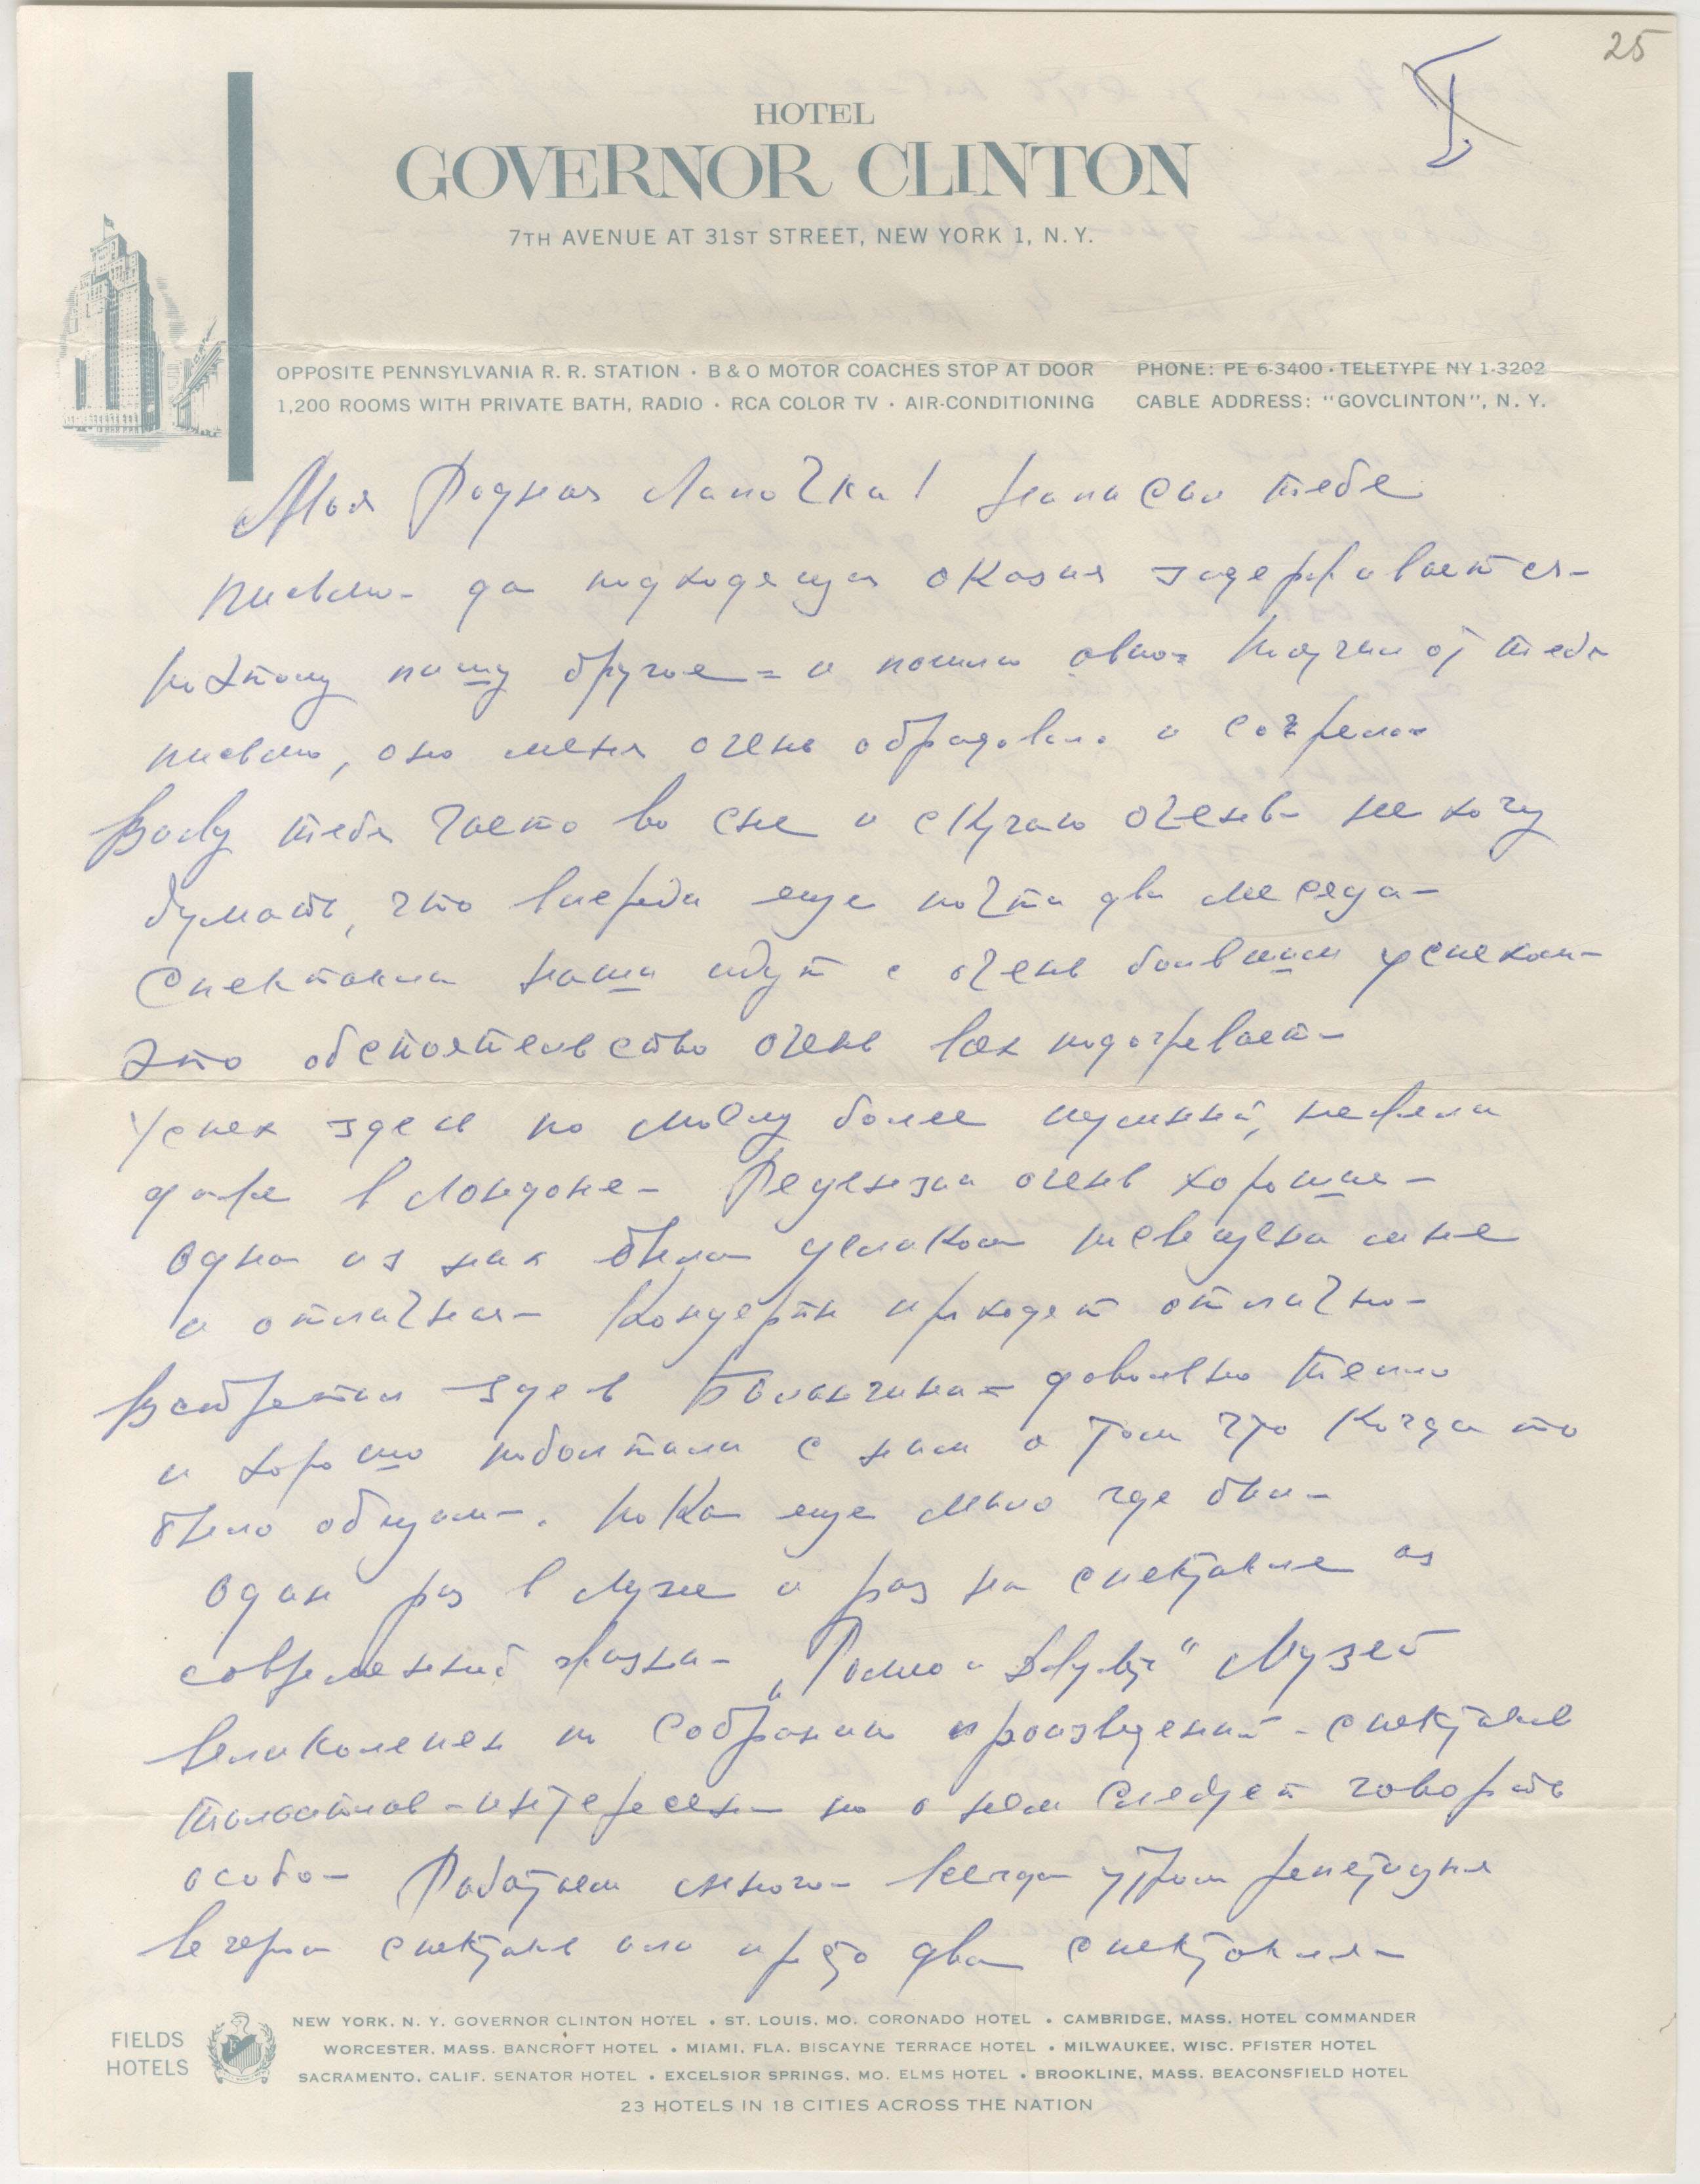 25
I
HOTEL
GOVERNOR CLINTON
7TH AVENUE AT 31ST STREET, NEW YORK 1, N. Y.
OPPOSITE PENNSYLVANIA R. R. STATION · B & O MOTOR COACHES STOP AT DOOR
1,200 ROOMS WITH PRIVATE BATH, RADIO · RCA COLOR TV · AIR-CONDITIONING
PHONE: PE 6-3400 · TELETYPE NY 1-3202
CABLE ADDRESS: "GOVCLINTON", N. Y.
Моя Родная Лапочка! Написал тебе
письмо- да подходящая оказия задерживается-
поэтому пишу другое = и пошлю авиа= Получил от тебя
письмо, оно меня очень обрадовало и согрело=
Вижу тебя часто во сне и скучаю очень- не хочу
думать, что впереди еще почти два месяца-
Спектакли наши идут с очень большим успехом-
это обстоятельство очень всех подогревает-
Успех здесь по моему более шумный, нежели
даже в Лондоне- Рецензии очень хорошие-
одна из них была целиком посвящена мне
и отличная- Концерты проходят отлично-
Встретили здесь Баланчина= довольно тепло
и хорошо поболтали с ним о том что когда то
было общим-. Пока еще мало где был-
один раз в Музее и раз на спектакле из
современной жизни- „Ромео и Джульета“ Музей
великолепен по собранию произведений- спектакль
талантлив- интересен- но о нем следует говорить
особо- Работаем много- всегда утром репетиция
вечером спектакль или просто два спектакля-
FIELDS
HOTELS
NEW YORK, N. Y. GOVERNOR CLINTON HOTEL • ST. LOUIS, MO. CORONADO HOTEL • CAMBRIDGE, MASS. HOTEL COMMANDER
WORCESTER, MASS. BANCROFT HOTEL • MIAMI, FLA. BISCAYNE TERRACE HOTEL • MILWAUKEE, WISC. PFISTER HOTEL
SACRAMENTO, CALIF. SENATOR HOTEL • EXCELSIOR SPRINGS, MO. ELMS HOTEL • BROOKLINE, MASS. BEACONSFIELD HOTEL
23 HOTELS IN 18 CITIES ACROSS THE NATION